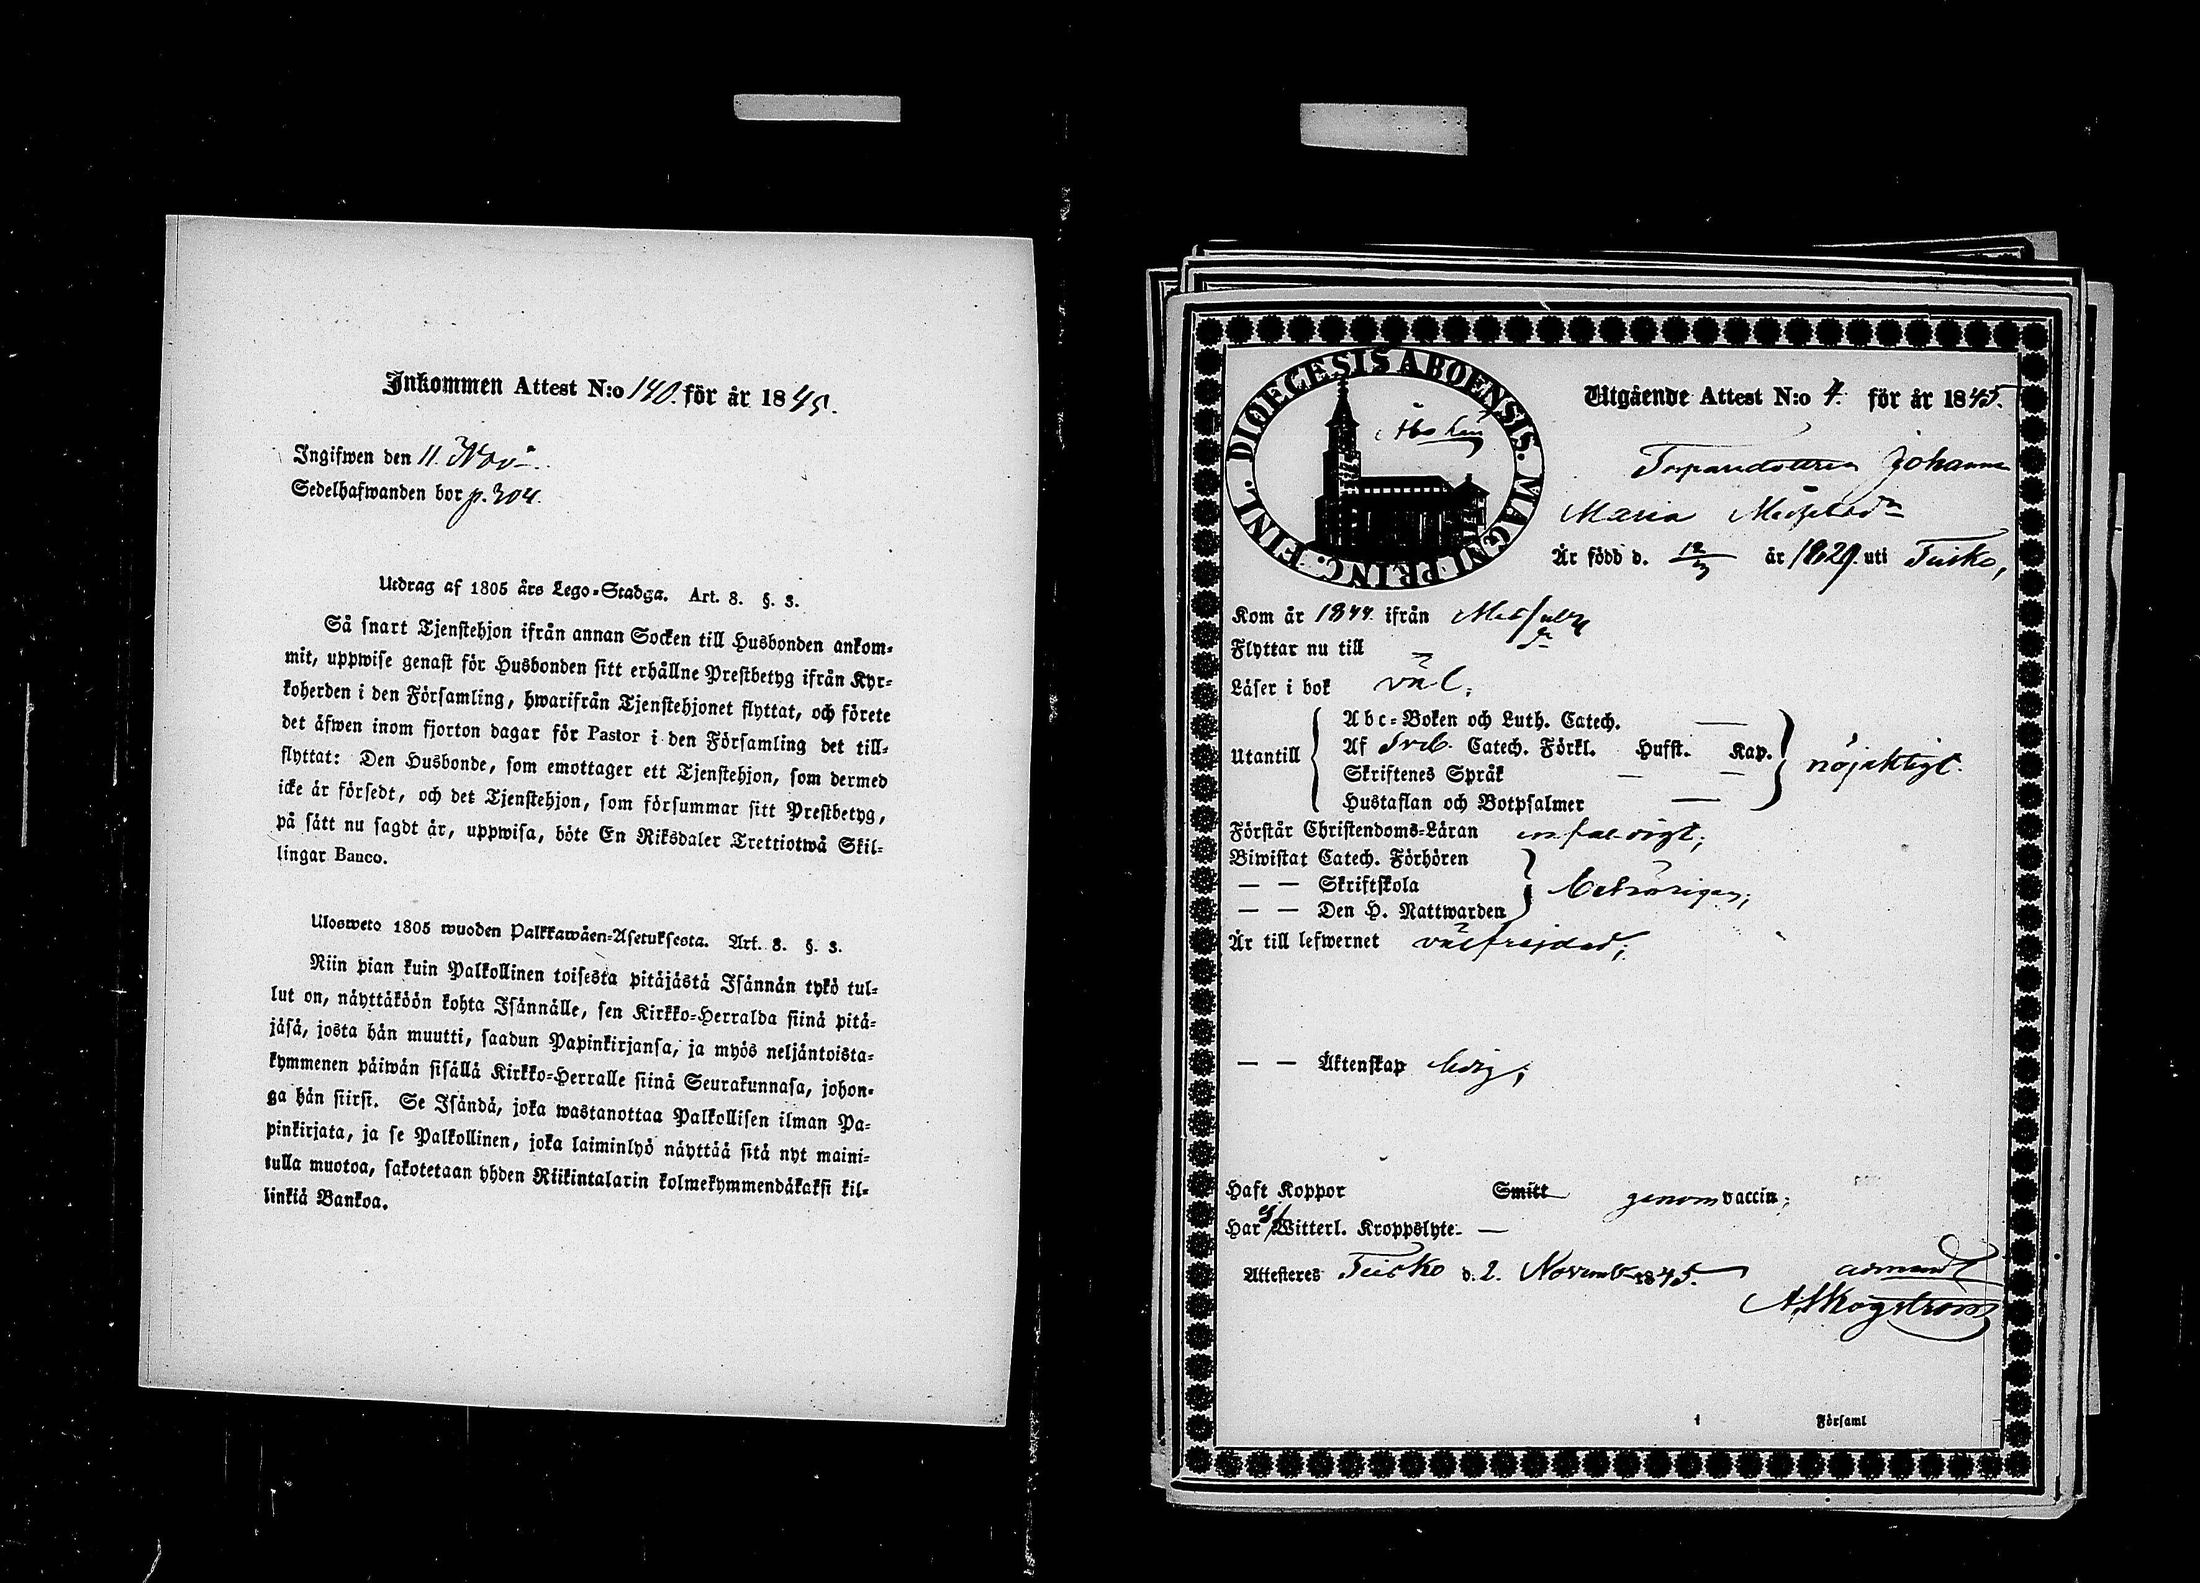 Inkommen Attest N:o 140. för år 1845.
Ingifwen den 11. Nov.
Sedelhafwanden bor p. 304.
Utdrag af 1805 års Lego-Stadga. Art. 8. §. 3.
Så snart Tjenstehjon ifrån annan Socken till Husbonden ankom-
mit, uppwise genast för Husbonden sitt erhållne Prestbetyg ifrån Kyr-
koherden i den Församling, hwarifrån Tjenstehjonet flyttat, och förete
det äfwen inom fjorton dagar för Pastor i den Församling det till-
flyttat: Den Husbonde, som emottager ett Tjenstehjon, som dermed
icke är försedt, och det Tjenstehjon, som försummar sitt Prestbetyg,
på sätt nu sagdt är, uppwisa, böte En Riksdaler Trettiotwå Skil-
lingar Banco.
Ulosweto 1805 wuoden Palkkawäen-Asetuksesta. Art. 8. §. 3.
Niin pian kuin Palkollinen toisesta pitäjästä Isännän tykö tul-
lut on, näyttäköön kohta Isännälle, sen Kirkko-Herralda siinä pitä-
jäsä, josta hän muutti, saadun Papinkirjansa, ja myös neljäntoista-
kymmenen päiwän sisällä Kirkko-Herralle siinä Seurakunnasa, johon-
ga hän siirsi. Se Isändä, joka wastanottaa Palkollisen ilman Pa-
pinkirjata, ja se Palkollinen, joka laiminlyö näyttää sitä nyt maini-
tulla muotoa, sakotetaan yhden Riikintalarin kolmekymmendäkaksi kil-
linkiä Bankoa.
DIOECESIS ABOENSIS. MAGNI PRINC. FINL.
Utgående Attest N:o 4. för år 1845.
Torparedottren Johanna
Maria
Är född d. 12/3 år 1829. uti Teisko,
Kom år 1844 ifrån Messuby
Flyttar nu till
Läser i bok väl;
Utantill
Abc-Boken och Luth. Catech. —
Af Sveb. Catech. Förkl. Hufst. Kap.
Skriftenes Språk — —
Hustaflan och Botpsalmer —
nöjaktigt.
Förstår Christendoms-Läran enfaldigt;
Biwistat Catech. Förhören
— — Skriftskola
— — Den H. Nattwarden
behörigen;
Är till lefwernet välfrejdad;
— — Äktenskap ledig;
Haft Koppor Smitt genom vaccin;
Har ej Witterl. Kroppslyte. —
Attesteras Teisko d. 2. Novemb. 1845.
A Skogström
i Församl